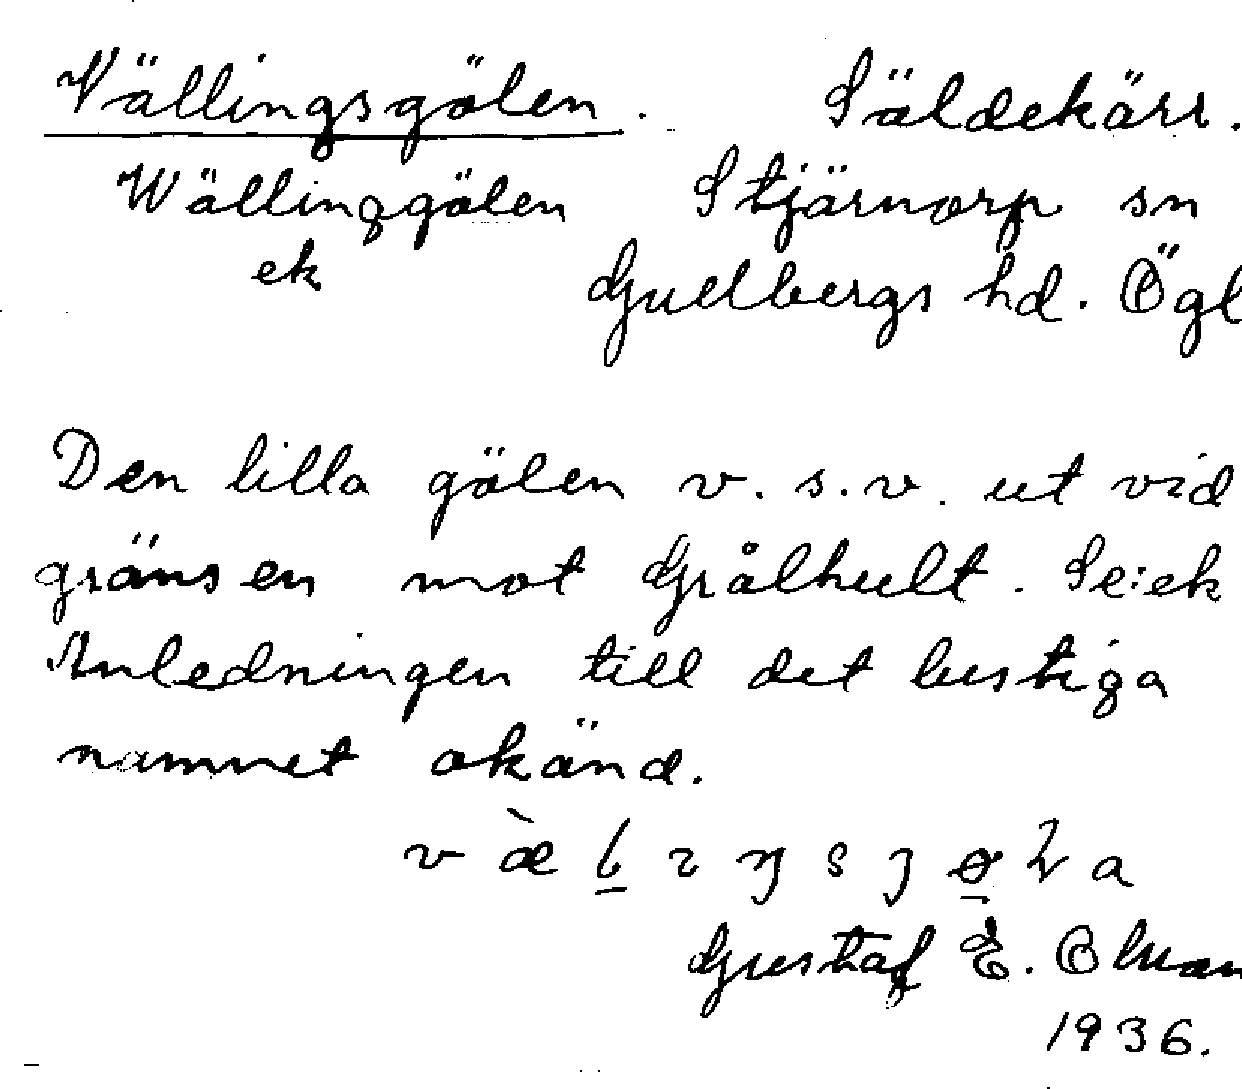 Vällingsgölen. Säldekärr.
Wällinggölen Stjärnorp sn
ek Gullbergs hd. Ögl
Den lilla gölen v.s.v. ut vid
gränsen mot Grålhult. Se: ek
Anledningen till det lustiga
namnet okänd.
Gustaf E. Olman
1936.